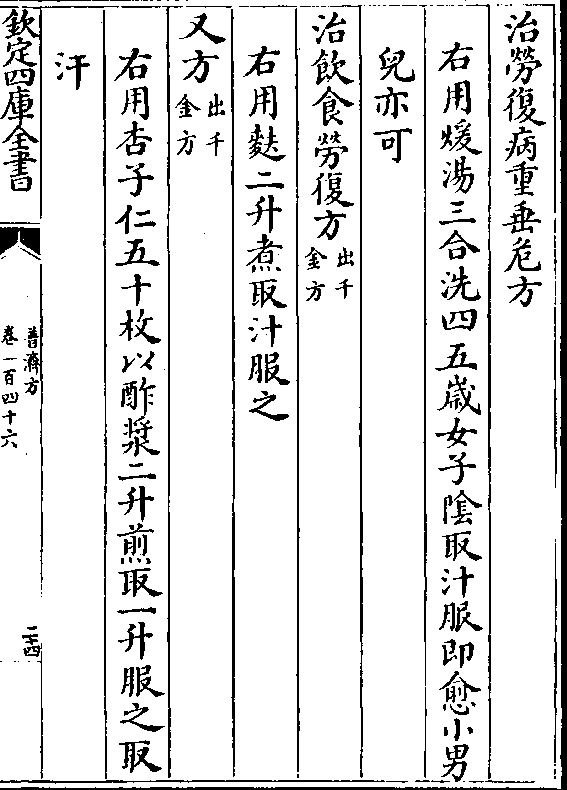 治勞復病重垂危方
右用煖湯三合洗四五歲女子陰取汁服即愈小男
兒亦可
治飲食勞復方出千金方
右用麩二升煮取汁服之
又方出千金方
右用杏子仁五十枚以酢漿二升煎取一升服之取
汗
欽定四庫全書
普濟方
卷一百四十六
二十四